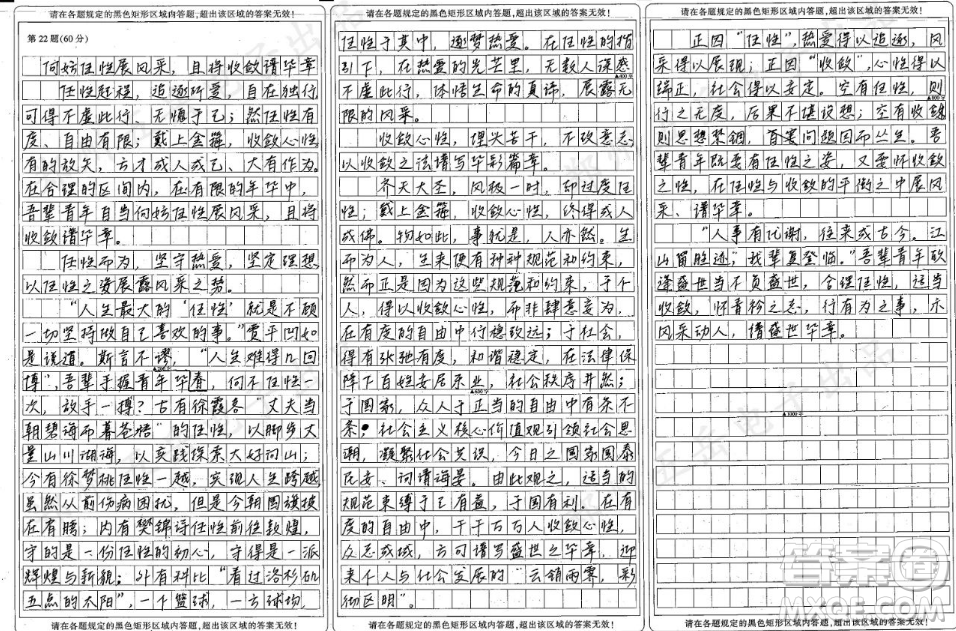 请在各题规定的黑色矩形区域内答题,超出该区域的答案无效!
第22题(60分)
何妨任性展风采，且将收敛谱华章
任性赶程，追逐所爱，自在独行
可得不虚此行、无愧于己；然任性有
度、自由有限；戴上金箍，收敛心性
有的放矢，方才成人成己、大有作为。
在合理的区间内，在有限的年华中，
吾辈青年自当何妨任性展风采，且将
收敛谱华章。
任性而为，坚守热爱，坚定理想
以任性之姿展露风采之梦。
“人生最大的‘任性’就是不顾
一切坚持做自己喜欢的事。”贾平凹如
是说道。斯言不谬，“人生难得几回
搏”，吾辈手握青年华春，何不任性一
次，放手一搏？古有徐霞客“丈夫当
朝碧海而暮苍梧”的任性，以脚步丈
量山川湖海，以实践探索大好河山；
今有徐梦桃任性一越，实现人生跨越
虽然从前伤病困扰，但是今朝国旗披
在肩膀；内有樊锦诗任性前往敦煌，
守的是一份任性的初心，守得是一派
辉煌与新貌；外有科比“看过洛杉矶
五点的太阳”，一个篮球，一方球场，
请在各题规定的黑色矩形区域内答题,超出该区域的答案无效!
请在各题规定的黑色矩形区域内答题,超出该区域的答案无效!
任性于其中，逐梦热爱。在任性的指
引下，在热爱的光芒里，无数人深感
不虚此行，体悟生命的真谛，展露无
限的风采。
收敛心性，埋头苦干，不改意志
以收敛之法谱写华彩篇章。
齐天大圣，风极一时，却过度任
性；戴上金箍，收敛心性，终得成人
成佛。物如此，事就是，人亦然。生
而为人，生来便有种种规范和约束，
然而正是因为这些规范和约束，于个
人，得以收敛心性，而非肆意妄为，
在有度的自由中行稳致远；于社会，
得有张弛有度，和谐稳定，在法律保
障下百姓安居乐业，社会秩序井然；
于国家，众人于正当的自由中有条不
紊。社会主义核心价值观引领社会思
潮，凝聚社会共识，今日之国家国泰
民安、河清海晏。由此观之，适当的
规范束缚于己有益，于国有利。在有
度的自由中，千千万万人收敛心性，
众志成城，方可谱写盛世之华章，迎
来个人与社会发展的“云销雨霁，彩
彻区明”。
请在各题规定的黑色矩形区域内答题,超出该区域的答案无效!
请在各题规定的黑色矩形区域内答题,超出该区域的答案无效!
正因“任性”，热爱得以追逐，风
采得以展现；正因“收敛”，心性得以
端正，社会得以安定。空有任性，则
行之无度，后果不堪设想；空有收敛
则思想禁锢，百害问题因而丛生。吾
辈青年既要有任性之姿，又要怀收敛
之性，在任性与收敛的平衡之中展风
采、谱华章。
“人事有代谢，往来成古今。江
山留胜迹；我辈复登临。”吾辈青年欣
逢盛世当不负盛世，合理任性，适当
收敛，怀青衿之志，行有为之事，亦
风采动人，谱盛世华章。
请在各题规定的黑色矩形区域内答题,超出该区域的答案无效!
答案圈
MXQE.COM